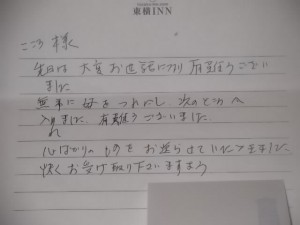 東横INN
こころ 様
先日は 大変 お世話になり 有難うござい
ました
無事に 母を つれだし、次のところへ
入れました。有難うございました
心ばかりの ものを お送らせていただきました
快く お受け取り下さいますよう